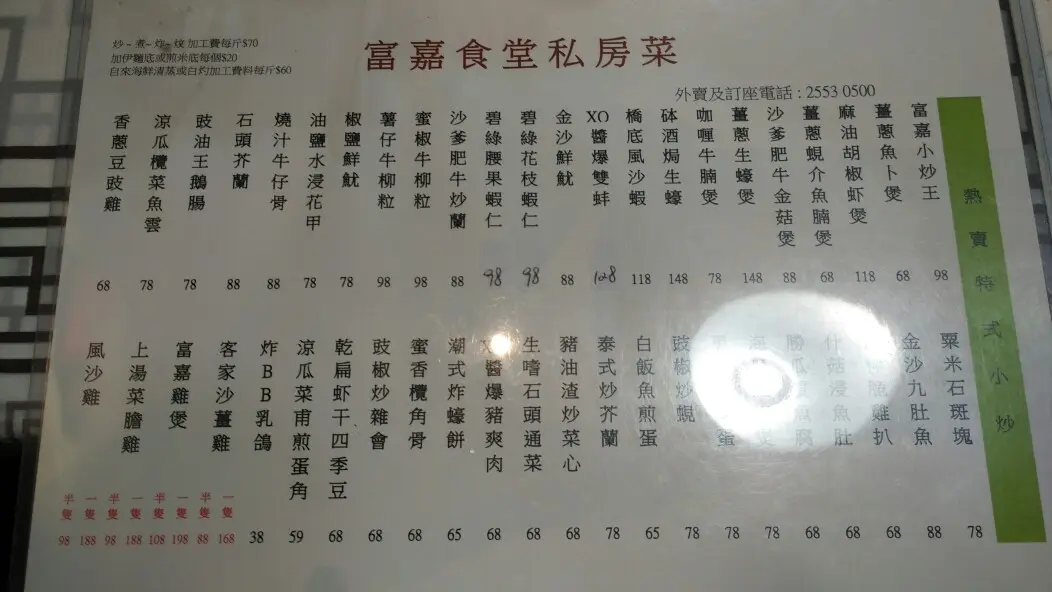 炒~煮~炸~炆 加工費每斤$70
加伊麵底或煎米底每個$20
自來海鮮清蒸或白灼加工費料每斤$60
富嘉食堂私房菜
外賣及訂座電話 : 2553 0500
熱賣特式小炒
富嘉小炒王 98
薑蔥魚卜煲 68
麻油胡椒虾煲 118
薑蔥蜆介魚腩煲 68
沙爹肥牛金菇煲 88
薑蔥生蠔煲 148
咖喱牛腩煲 78
砵酒焗生蠔 148
橋底風沙蝦 118
XO醬爆雙蚌 128
金沙鮮魷 88
碧綠花枝蝦仁 98
碧綠腰果蝦仁 98
沙爹肥牛炒蘭 88
蜜椒牛柳粒 98
薯仔牛柳粒 98
椒鹽鮮魷 78
油鹽水浸花甲 78
燒汁牛仔骨 88
石頭芥蘭 88
豉油王鵝腸 78
涼瓜欖菜魚雲 78
香蔥豆豉雞 68
粟米石斑塊 78
金沙九肚魚 88
雞扒 68
什菇浸魚肚 68
勝瓜 腐 68
78
蛋 78
豉椒炒蜆 78
白飯魚煎蛋 65
泰式炒芥蘭 78
豬油渣炒菜心 68
生嗜石頭通菜 68
醬爆豬爽肉 68
潮式炸蠔餅 65
蜜香欖角骨 68
豉椒炒雜會 68
乾扁虾干四季豆 68
涼瓜菜甫煎蛋角 59
炸BB乳鴿 38
客家沙薑雞 一隻 168 半隻 88
富嘉雞煲 一隻 198 半隻 108
上湯菜膽雞 一隻 188 半隻 98
風沙雞 一隻 188 半隻 98